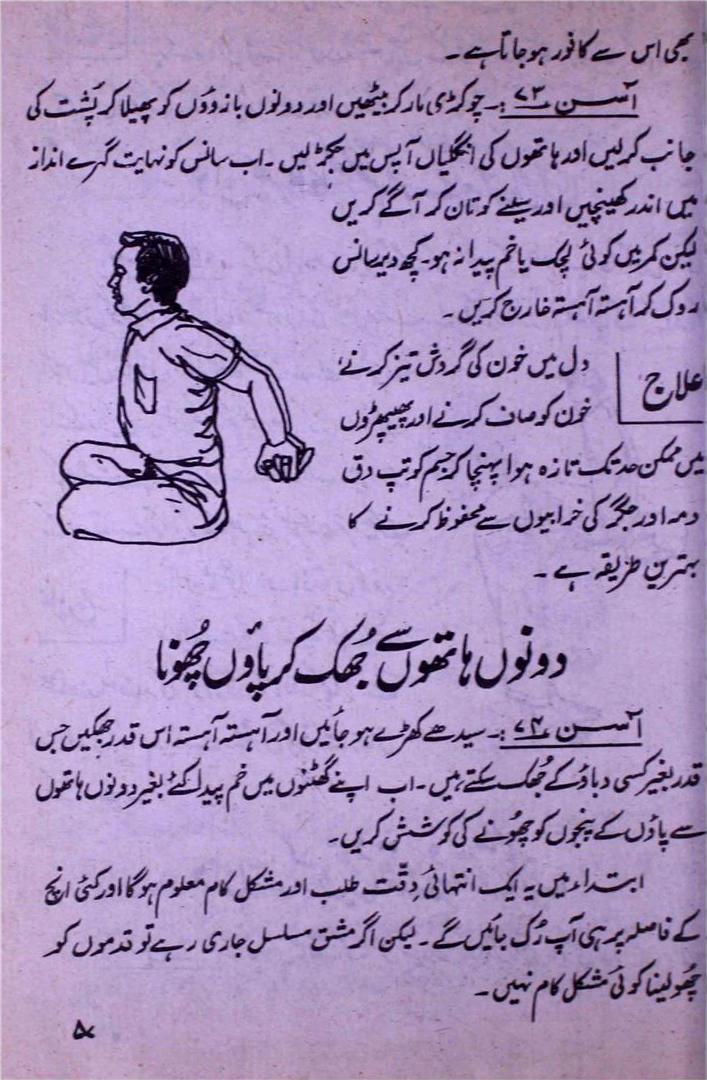 بھی اس سے کافور ہو جاتا ہے ۔
آسن ۷۳ :۔ چوکڑی مار کر بیٹھیں اور دونوں بازوؤں کو پھیلا کر پشت کی
جانب کر لیں اور ہاتھوں کی انگلیاں آپس میں جکڑ لیں ۔ اب سانس کو نہایت گہرے انداز
میں اندر کھینچیں اور سینے کو تان کر آگے کریں
لیکن کمر میں کوئی لچک یا خم پیدا نہ ہو۔ کچھ دیر سانس
روک کر آہستہ آہستہ خارج کریں ۔
علاج
دل میں خون کی گردش تیز کرنے،
خون کو صاف کرنے اور پھیپھڑوں
میں ممکن حد تک تازہ ہوا پہنچا کر جسم کو تپ دق
دمہ اور جگر کی خرابیوں سے محفوظ کرنے کا
بہترین طریقہ ہے ۔
دونوں ہاتھوں سے جُھک کر پاؤں چُھونا
آسن ۷۴ :۔ سیدھے کھڑے ہو جائیں اور آہستہ آہستہ اس قدر جھکیں جس
قدر بغیر کسی دباؤ کے جُھک سکتے ہیں ۔ اب اپنے گھٹنوں میں خم پیدا کئے بغیر دونوں ہاتھوں
سے پاؤں کے پنجوں کو چھُونے کی کوشش کریں۔
ابتداء میں یہ ایک انتہائی دِقّت طلب اور مشکل کام معلوم ہو گا اور کئی انچ
کے فاصلہ پر ہی آپ رُک جائیں گے ۔ لیکن اگر مشق مسلسل جاری رہے تو قدموں کو
چُھو لینا کوئی مشکل کام نہیں ۔